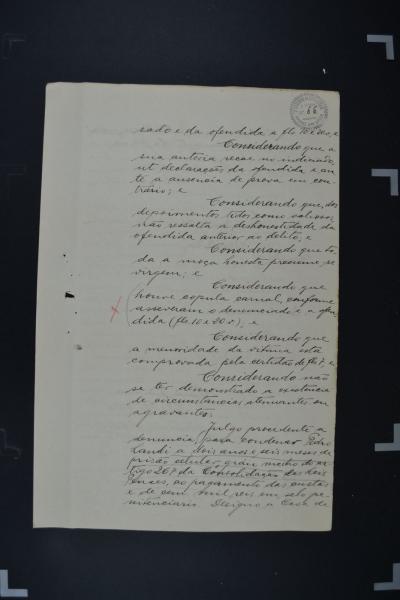 rado e da ofendida a fls 10 e 20, e
Considerando que a
sua autoria recae no indiciado
ut declarações da ofendida e an-
te a ausencia de prova em con-
trario; e
Considerando que, dos
depoimentos tidos como valiosos,
não ressalta a deshonestidade da
ofendida anterior ao delito; e
Considerando que to-
da a moça honesta presume-se
virgem; e
Considerando que
houve copula carnal, conforme
asseveram o denunciado e a ofen-
dida (fls. 10 e 20 v.); e
Considerando que
a menoridade da vitima está
comprovada pela certidão de fls 7, e
Considerando não
se ter demonstrado a existencia
de circunstancias atenuantes ou
agravantes:
Julgo procedente a
denuncia, para condenar Pedro
Landi a dois anos e seis meses de
prisão celular, grau medio do ar-
tigo 267 da Consolidação das Leis
Penaes, ao pagamento das custas
e de cem mil reis em selo pe-
nitenciario. Designo a Casa de